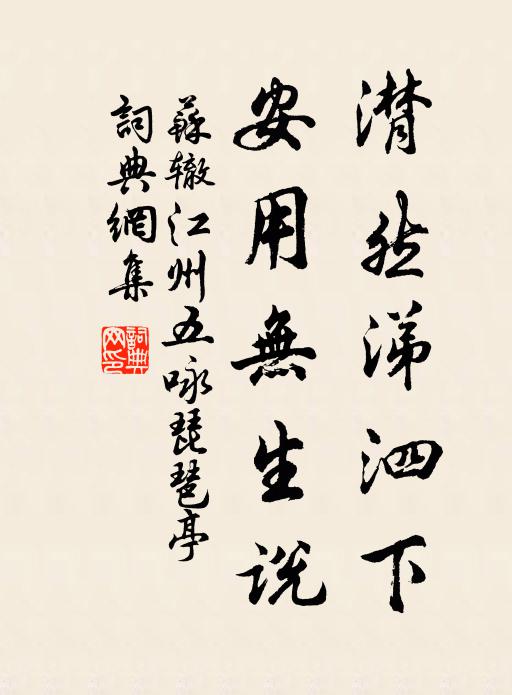 潸然涕泗下
安用無生说
蘇辙江州五咏琵琶亭
詞典網集
詞典網印